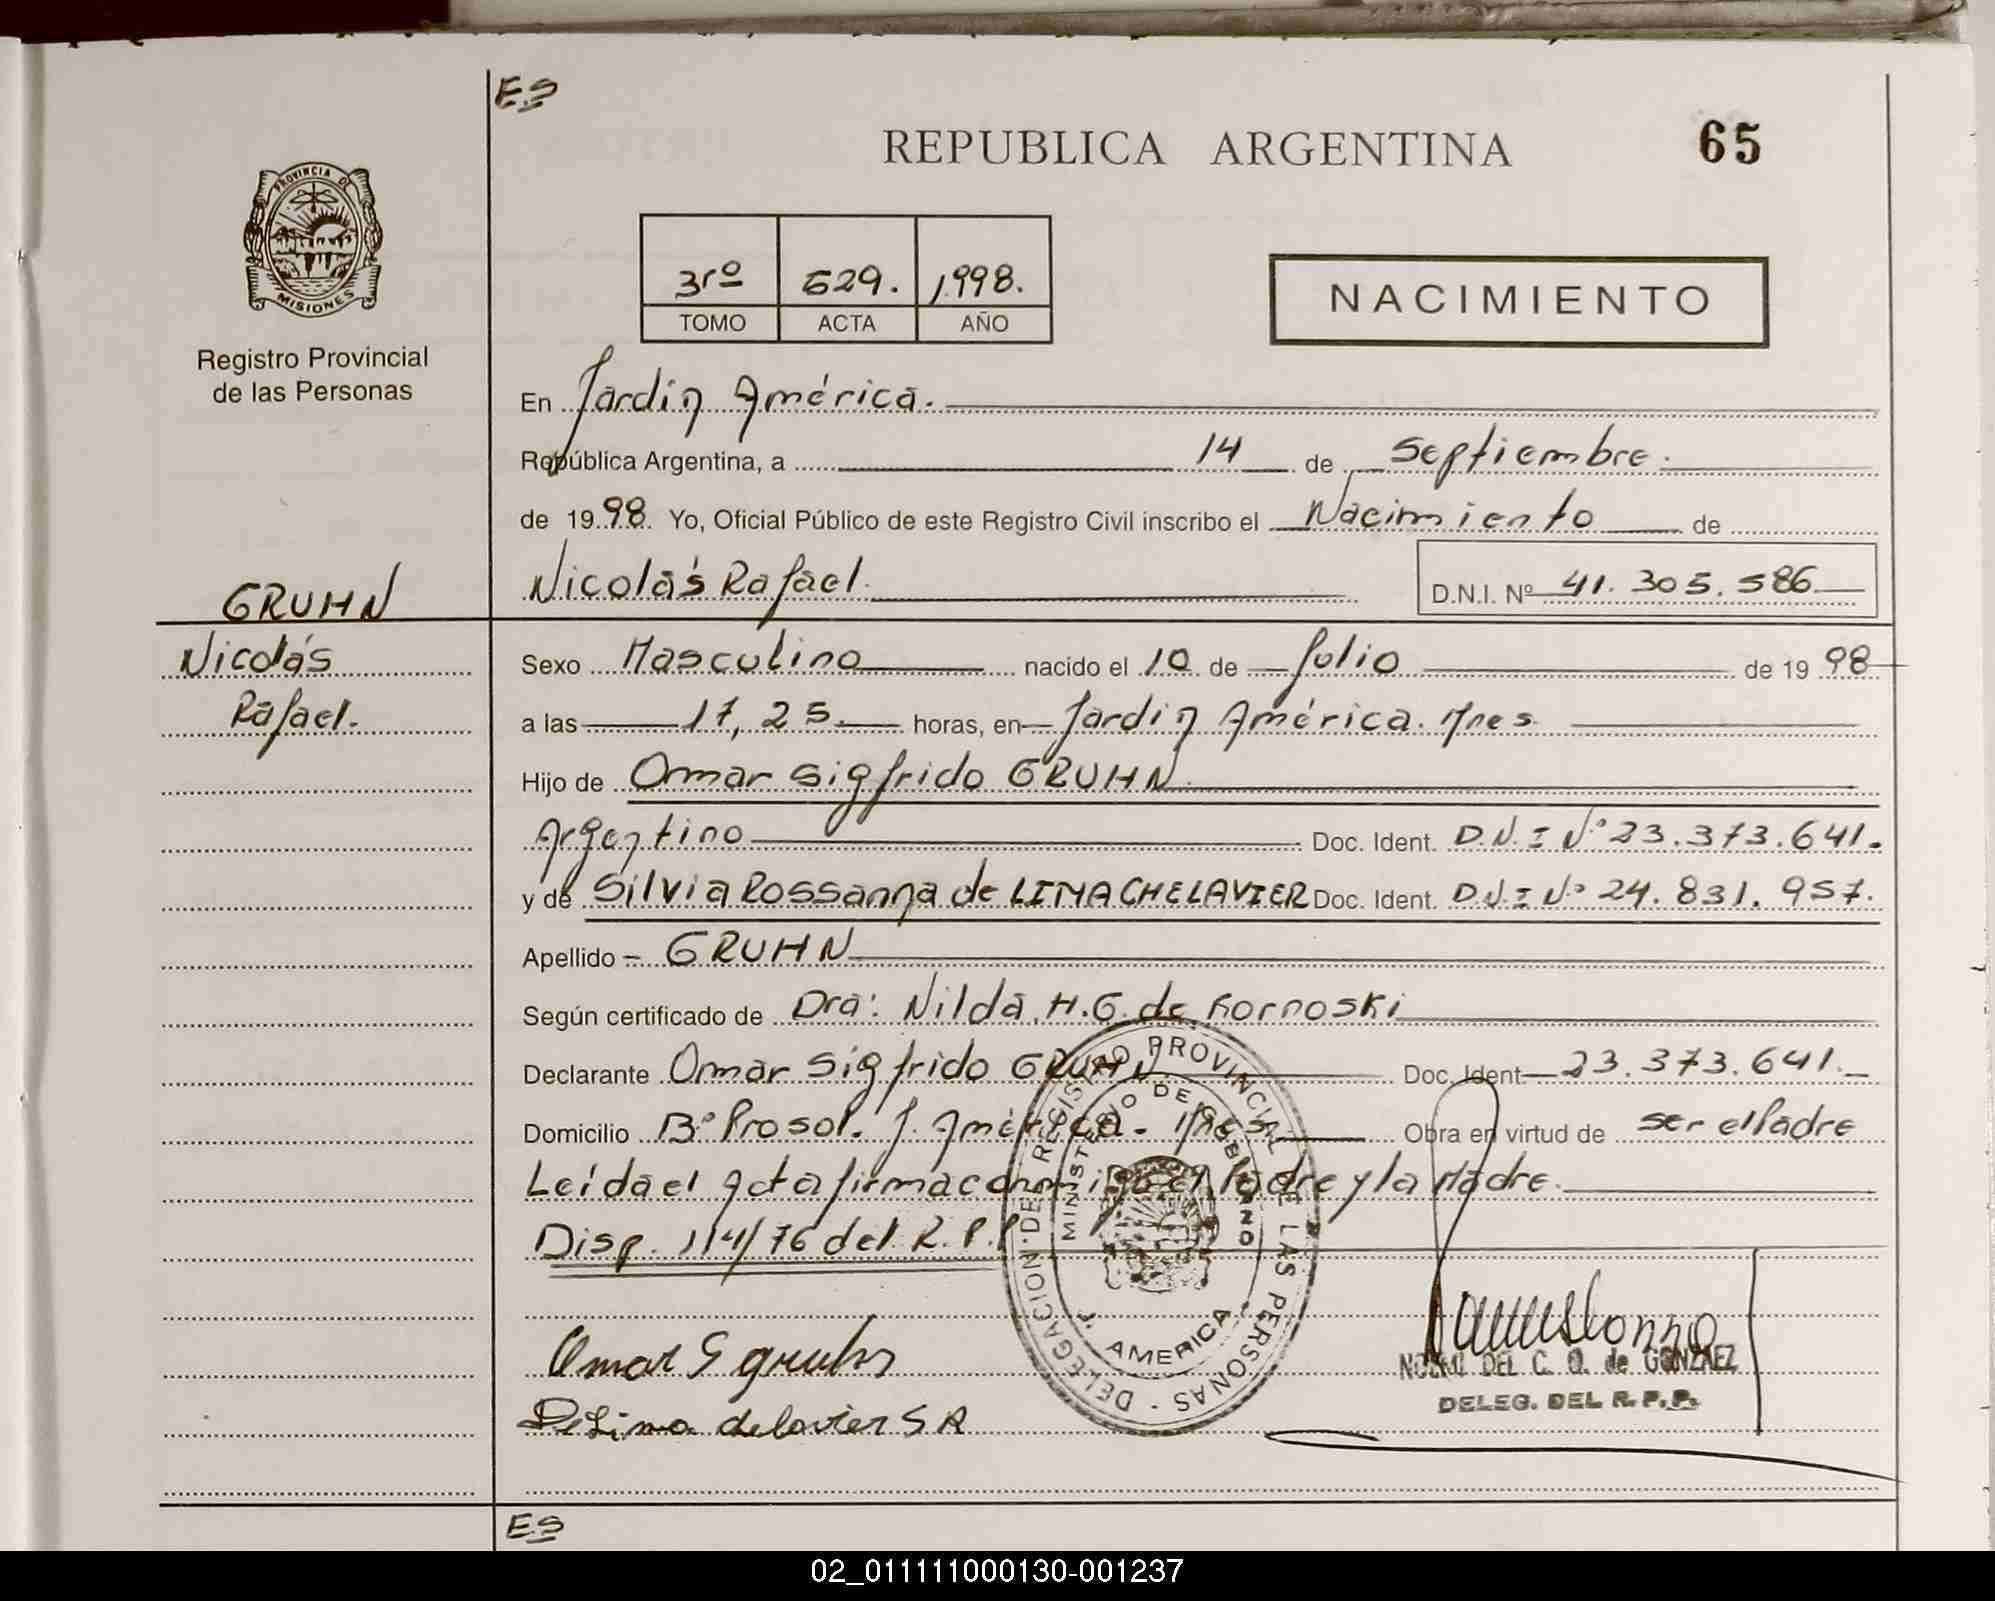 ES
REPUBLICA ARGENTINA
65
PROVINCIA DE
MISIONES
Registro Provincial
de las Personas
3ro 529. 1.998.
TOMO ACTA AÑO
NACIMIENTO
En Jardin América.
República Argentina, a 14 de septiembre.
de 1998. Yo, Oficial Público de este Registro Civil inscribo el Nacimiento de
Nicolás Rafael. D.N.I. Nº 41.305.586
GRUHN
Nicolás
Rafael.
Sexo Masculino nacido el 10 de Julio de 1998
a las 17,25 horas, en Jardin América. Mnes.
Hijo de Omar Sigfrido GRUHN
Argentino Doc. Ident. D.N.I Nº 23.373.641.
y de Silvia Rossanna de LIMA CHELAVIER Doc. Ident. D.N.I Nº 24.831.957.
Apellido GRUHN
Según certificado de Dra: Nilda. H.G. de Kornoski
Declarante Omar Sigfrido GRUHN Doc. Ident 23.373.641.
Domicilio Bº Prosol. J. América. Mnes. Obra en virtud de ser el Padre
Leída el Acta firma conmigo el Padre y la Madre.
Disp. 114/76 del R.P.P
DELEGACION DEL REGISTRO PROVINCIAL DE LAS PERSONAS
MINISTERIO DE GOBIERNO
J. AMERICA
Omar S gruhn
De Lima chelavier S R
DEL C. O. de GONZALEZ
DELEG. DEL R. P. P.
ES
02_011111000130-001237